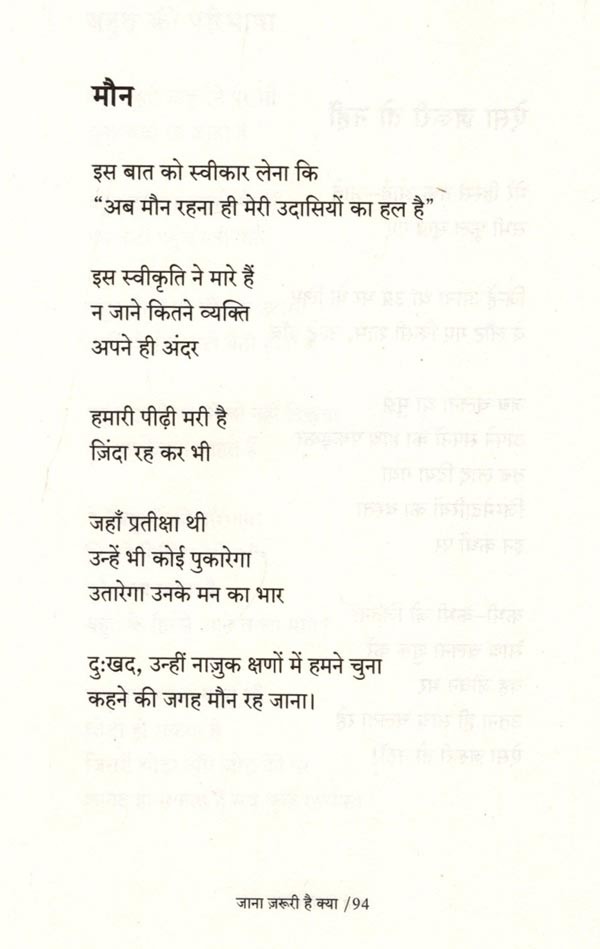 मौन
इस बात को स्वीकार लेना कि
“अब मौन रहना ही मेरी उदासियों का हल है”
इस स्वीकृति ने मारे हैं
न जाने कितने व्यक्ति
अपने ही अंदर
हमारी पीढ़ी मरी है
ज़िंदा रह कर भी
जहाँ प्रतीक्षा थी
उन्हें भी कोई पुकारेगा
उतारेगा उनके मन का भार
दुःखद, उन्हीं नाज़ुक क्षणों में हमने चुना
कहने की जगह मौन रह जाना।
जाना ज़रूरी है क्या /94